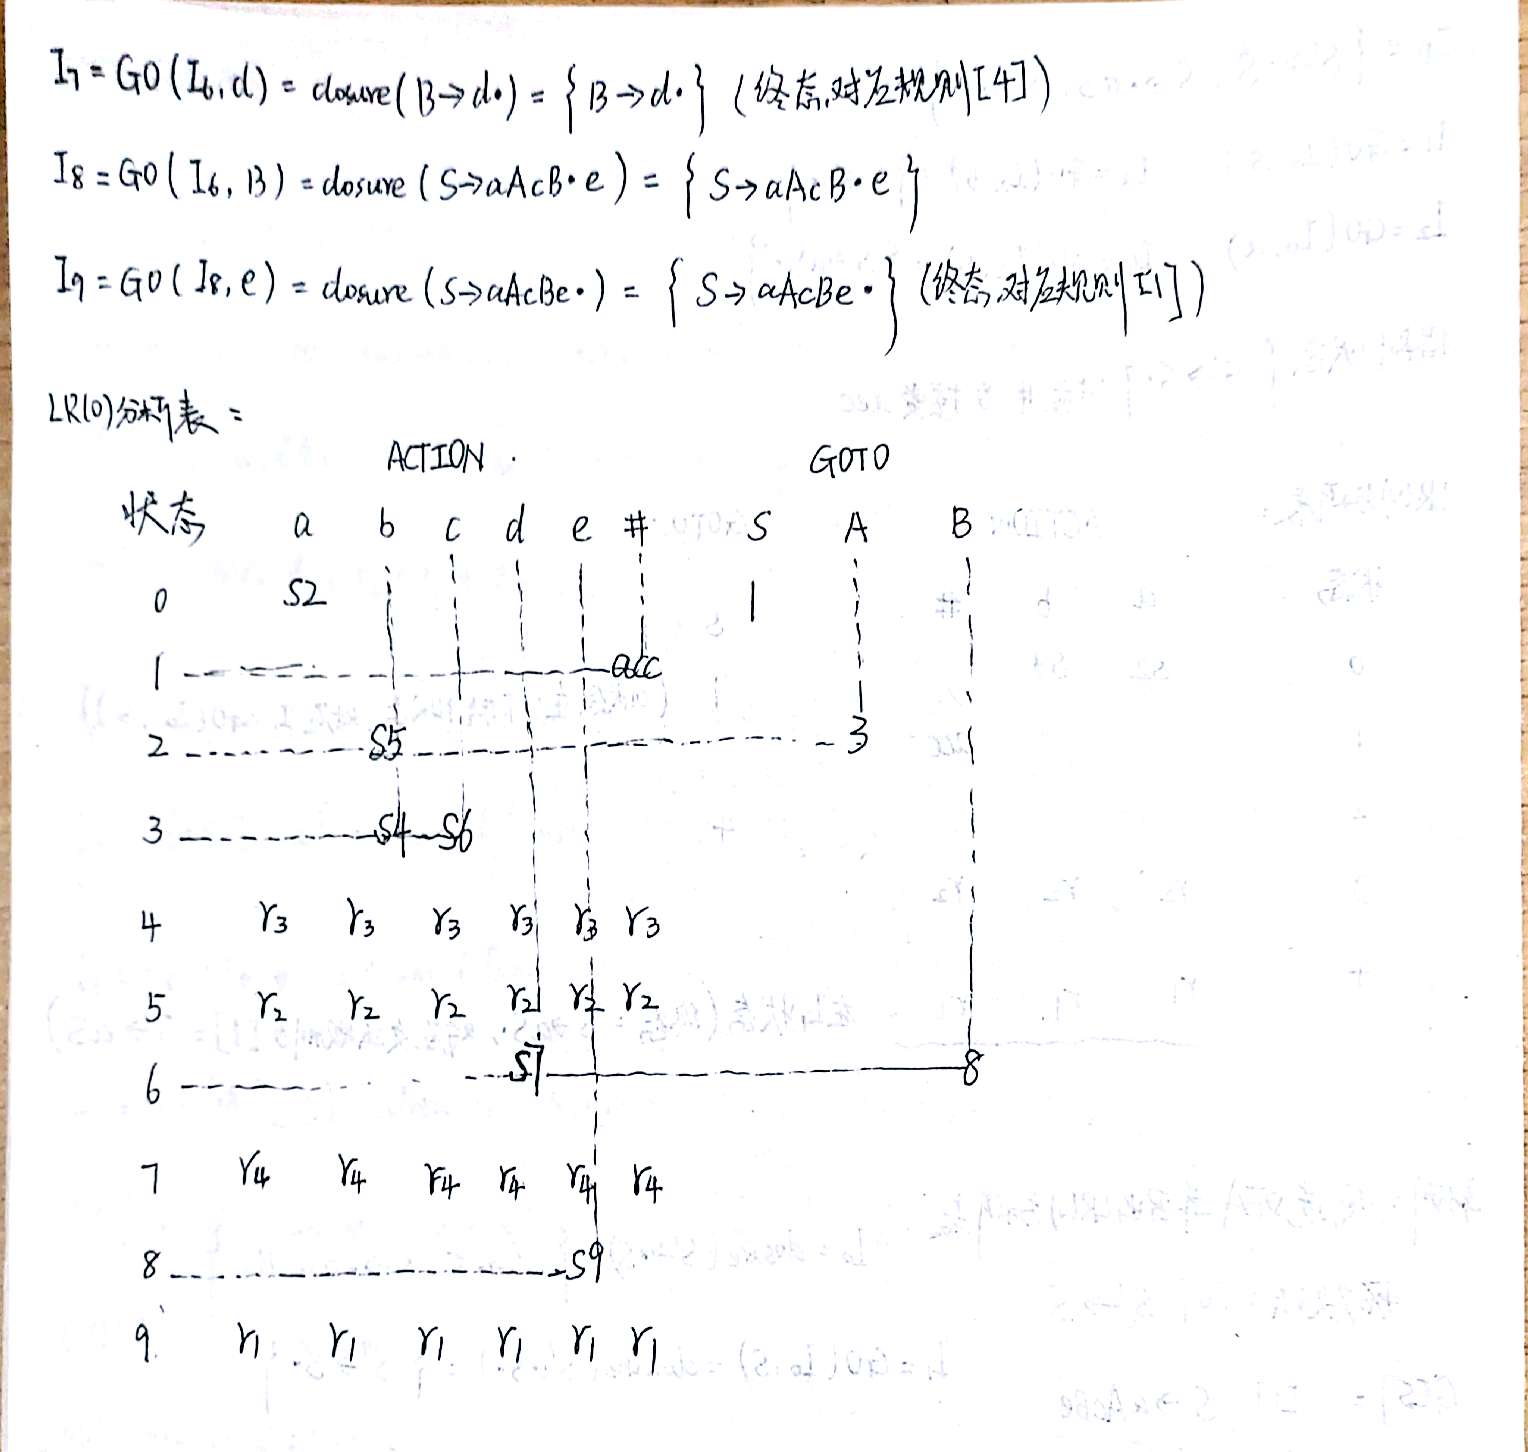 I7 = GO(I6,d) = closure(B→d•) = {B→d•} (终态,对应规则[4])
I8 = GO(I6,B) = closure(S→aAcB•e) = {S→aAcB•e}
I9 = GO(I8,e) = closure(S→aAcBe•) = {S→aAcBe•} (终态,对应规则[1])
LR(0)分析表:
ACTION GOTO
状态 a b c d e # S A B
0 S2 1
1 acc
2 S5 3
3 S4 S6
4 r3 r3 r3 r3 r3 r3
5 r2 r2 r2 r2 r2 r2
6 S7 8
7 r4 r4 r4 r4 r4 r4
8 S9
9 r1 r1 r1 r1 r1 r1